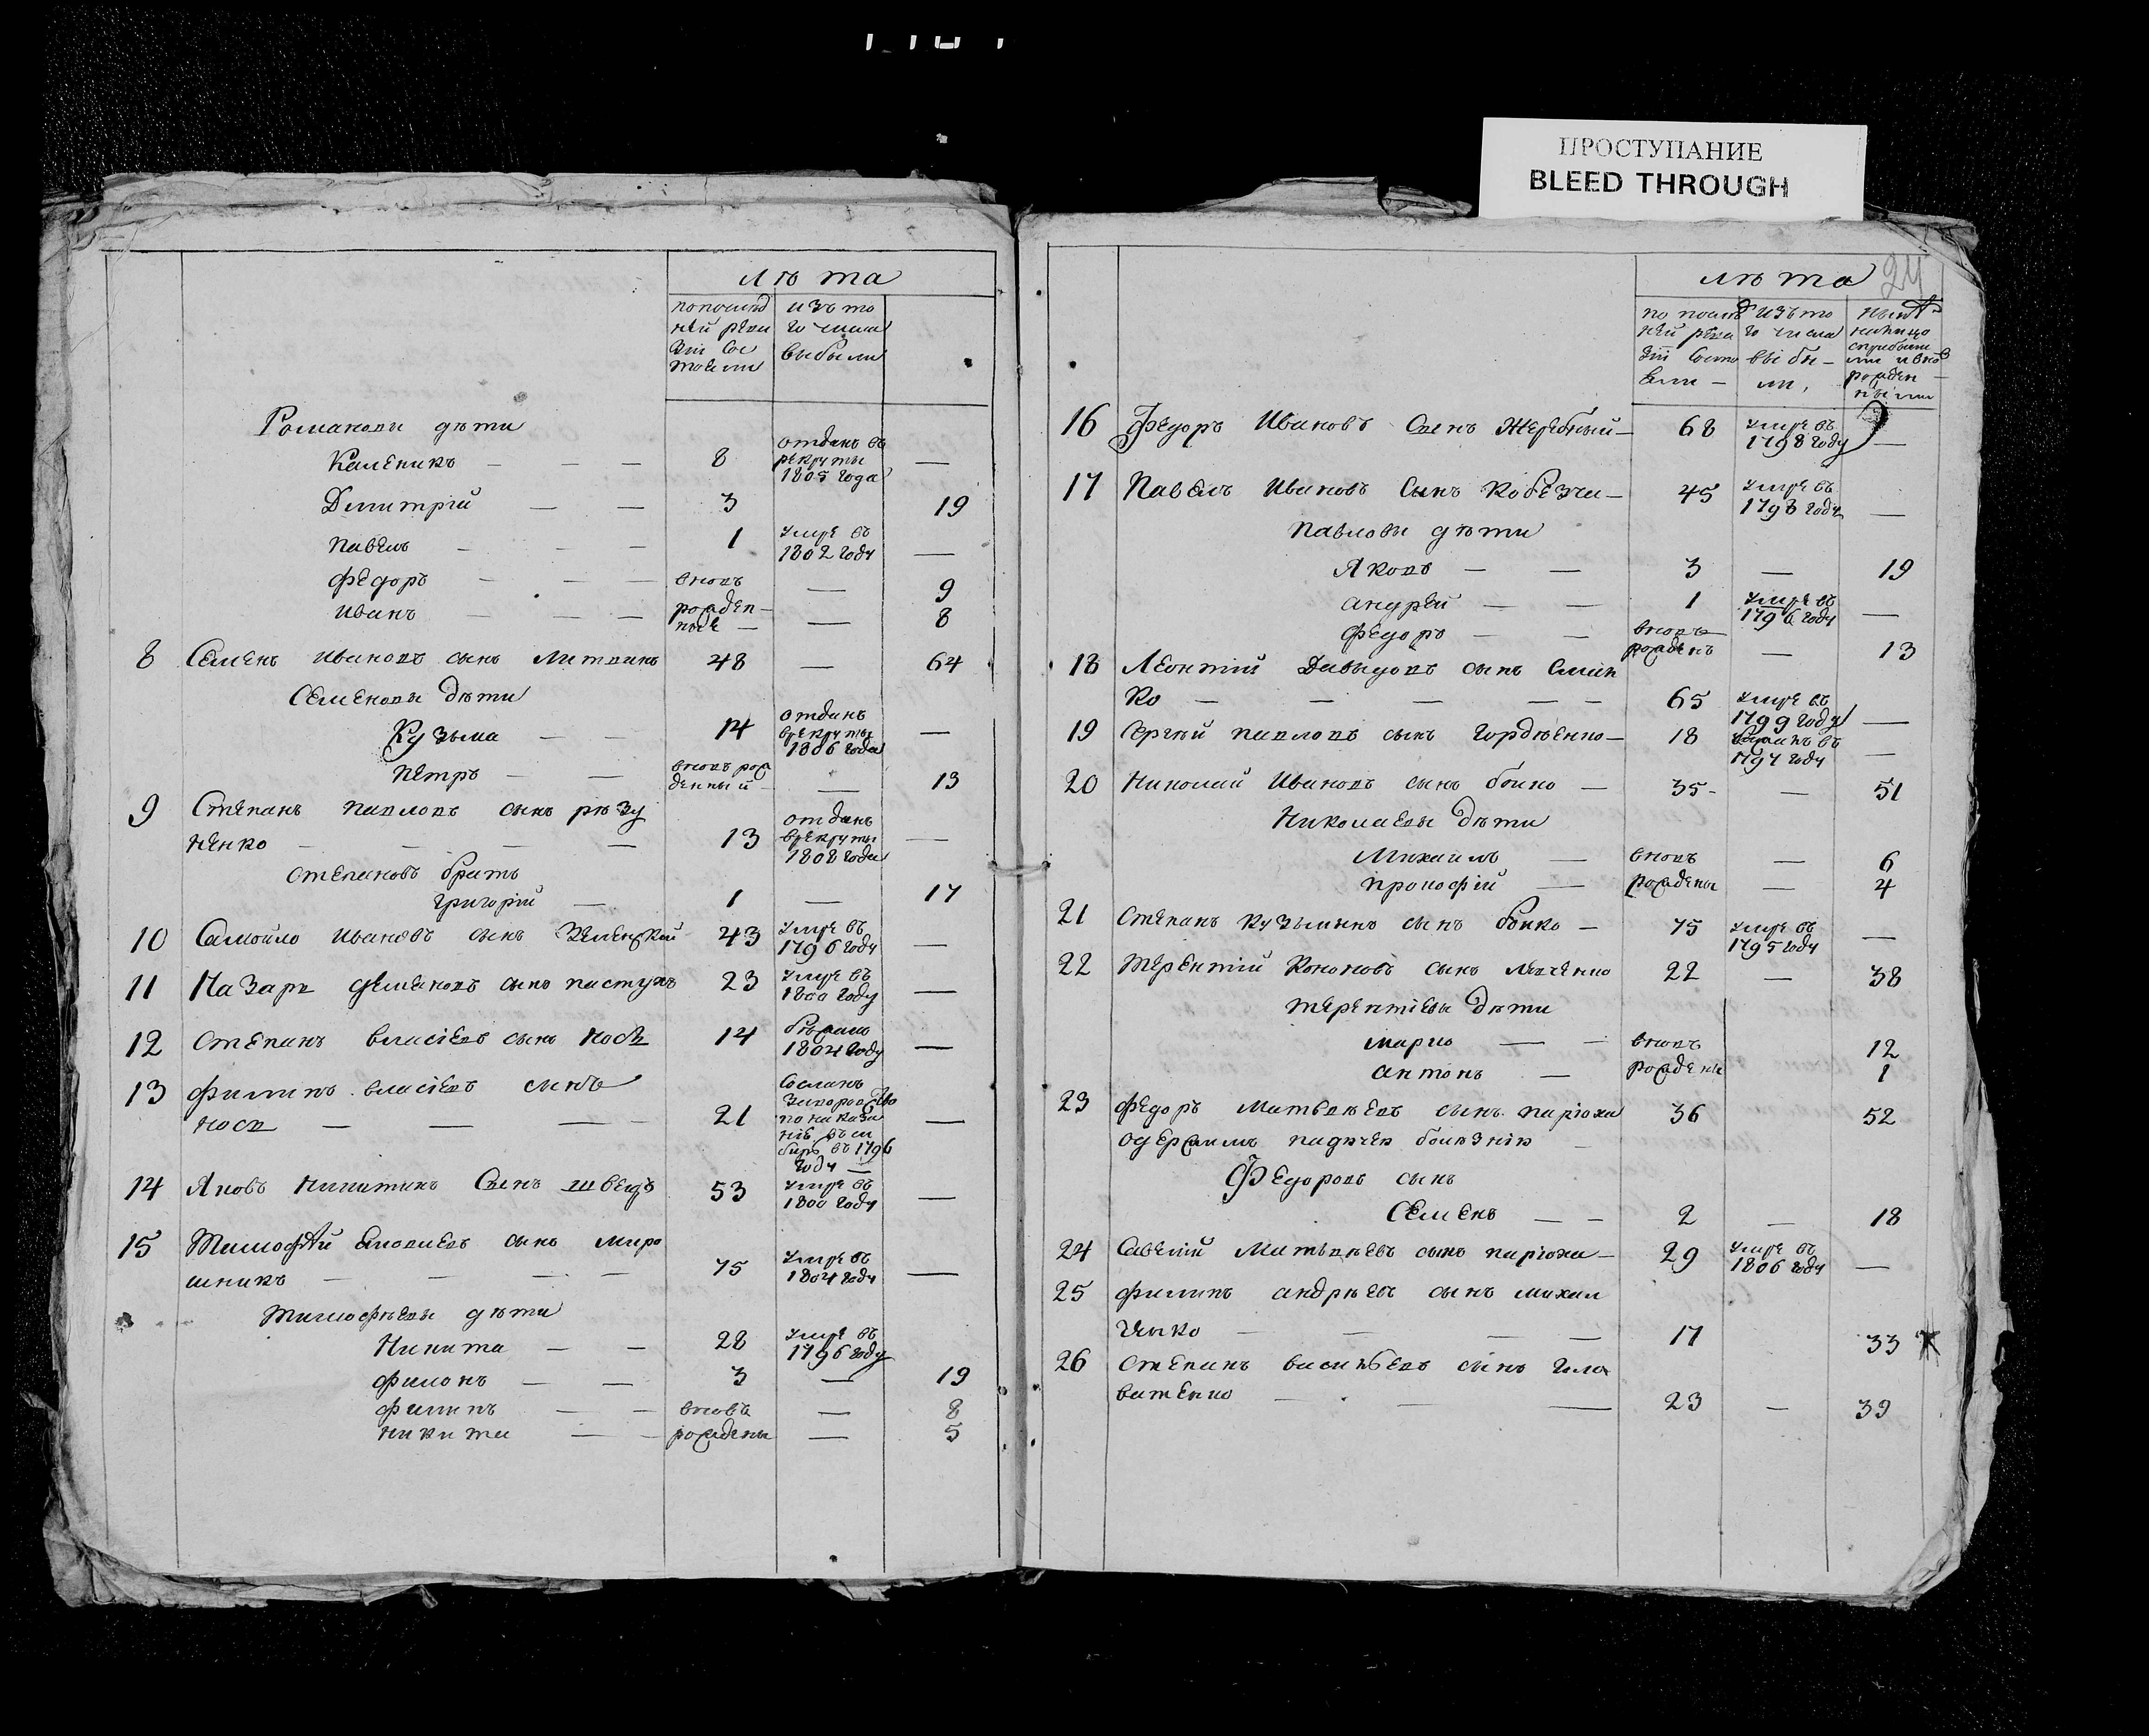 ПРОСТУПАНИЕ
BLEED THROUGH
лѣта
по послѣд изъ то
ней реви го числа
зiи сос выбыли
тояли
Романовы дѣти
Каленикъ — — — 8 отданъ въ рекруты 1805 года —
Дмитрій — — 3 19
Павелъ — — 1 умре въ 1802 году —
Федоръ — — — вновь — 9
Иванъ — — — рожденные — — 8
8 Семенъ Ивановъ сынъ Литвинъ 48 — 64
Семеновы дѣти
Кузьма — — 14 отданъ в рекруты 1806 года —
Петръ — — вновь рожденный — — 13
9 Степанъ Павловъ сынъ рѣзу
ненко — — — — 13 отданъ в рекруты 1808 года —
Степановъ братъ
Григорій — 1 — 17
10 Самойло Ивановъ сынъ Зеленскій 43 умре въ 1796 году —
11 Назаръ Семеновъ сынъ пастухъ 23 умре въ 1800 году —
12 Степанъ власіевъ сынъ Носъ 14 бѣжалъ 1804 году —
13 филипъ власіевъ сынъ
носъ — — — 21 Сосланъ въ 1796 году — —
14 Яковъ Никитинъ Сынъ швецъ 53 умре въ 1800 году —
15 Тимофѣй сынъ миро
шникъ — — — — 75 умре въ 1804 году —
Тимофѣевы дѣти
Никита — — 28 умре въ 1796 году
филонъ — — 3 — 19
филипъ — — вновь — 8
никита — — рождены — 5
24
лѣта
по послѣд изъ то нынѣ
ней реви го числа
зiи состо выбы— вновь
яли — ли, рожден—
ными
16 Федоръ Ивановъ Сынъ Жеребный — 68 умре въ 1798 году —
17 Павелъ Ивановъ Сынъ Кобезчи — 45 умре въ 1798 году —
Павловы дѣти
Яковъ — — 3 — 19
андрей — — 1 умре въ 1796 году —
федоръ — — вновь рожденъ — 13
18 Леонтій Давыдовъ сынъ Сыин
ко — — — — — 65 умре въ 1799 году —
19 Сергѣй павловъ сынъ Гордѣенко — 18 въ 1797 году —
20 Николай Ивановъ сынъ бойко — 35 - — 51
Николаевы дѣти
Михаилъ — вновь — 6
прокофій — рождены — 4
21 Степанъ кузьминъ сынъ бойко — 75 умре въ 1795 году —
22 Терентій Кононовъ сынъ Левченко 22 — 38
терентіевы дѣти
марко — — вновь 12
антонъ — рождены 1
23 федоръ Матвѣевъ сынъ паріохи 36 52
одержимъ падучей болѣзнію —
Федоровъ сынъ
Семенъ — — 2 — 18
24 Савелій Матвѣевъ сынъ паріохи — 29 умре въ 1806 году —
25 филипъ андрѣевъ сынъ михал
чико — — — — 17 33
26 Степанъ васильевъ сынъ Гила
ватенко — — 23 — 39